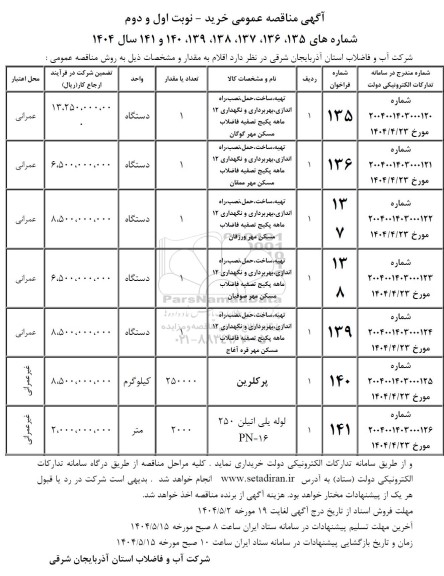 آگهی مناقصه عمومی خرید - نوبت اول و دوم
شماره های ۱۳۵، ۱۳۶، ۱۳۷، ۱۳۸، ۱۳۹، ۱۴۰ و ۱۴۱ سال ۱۴۰۴
شرکت آب و فاضلاب استان آذربایجان شرقی در نظر دارد اقلام به مقدار و مشخصات ذیل به روش مناقصه عمومی :
شماره مندرج در سامانه تدارکات الکترونیکی دولت | شماره فراخوان | ردیف | نام و مشخصات کالا | تعداد یا مقدار | واحد | تضمین شرکت در فرآیند ارجاع کار(ریال) | محل اعتبار
شماره ۲۰۰۴۰۰۱۴۰۳۰۰۰۱۲۰ مورخ ۱۴۰۴/۴/۲۳ | ۱۳۵ | ۱ | تهیه،ساخت،حمل،نصب،راه اندازی،بهرپرداری و نگهداری ۱۲ ماهه پکیج تصفیه فاضلاب مسکن مهر گوگان | ۱ | دستگاه | ۱۳،۲۵۰،۰۰۰،۰۰۰ | عمرانی
شماره ۲۰۰۴۰۰۱۴۰۳۰۰۰۱۲۱ مورخ ۱۴۰۴/۴/۲۳ | ۱۳۶ | ۱ | تهیه،ساخت،حمل،نصب،راه اندازی،بهرپرداری و نگهداری ۱۲ ماهه پکیج تصفیه فاضلاب مسکن مهر ممقان | ۱ | دستگاه | ۶،۵۰۰،۰۰۰،۰۰۰ | عمرانی
شماره ۲۰۰۴۰۰۱۴۰۳۰۰۰۱۲۲ مورخ ۱۴۰۴/۴/۲۳ | ۱۳۷ | ۱ | تهیه،ساخت،حمل،نصب،راه اندازی،بهرپرداری و نگهداری ۱۲ ماهه پکیج تصفیه فاضلاب مسکن مهر ورزقان | ۱ | دستگاه | ۸،۵۰۰،۰۰۰،۰۰۰ | عمرانی
شماره ۲۰۰۴۰۰۱۴۰۳۰۰۰۱۲۳ مورخ ۱۴۰۴/۴/۲۳ | ۱۳۸ | ۱ | تهیه،ساخت،حمل،نصب،راه اندازی،بهرپرداری و نگهداری ۱۲ ماهه پکیج تصفیه فاضلاب مسکن مهر صوفیان | ۱ | دستگاه | ۶،۵۰۰،۰۰۰،۰۰۰ | عمرانی
شماره ۲۰۰۴۰۰۱۴۰۳۰۰۰۱۲۴ مورخ ۱۴۰۴/۴/۲۳ | ۱۳۹ | ۱ | تهیه،ساخت،حمل،نصب،راه اندازی،بهرپرداری و نگهداری ۱۲ ماهه پکیج تصفیه فاضلاب مسکن مهر قره آغاج | ۱ | دستگاه | ۸،۵۰۰،۰۰۰،۰۰۰ | عمرانی
شماره ۲۰۰۴۰۰۱۴۰۳۰۰۰۱۲۵ مورخ ۱۴۰۴/۴/۲۳ | ۱۴۰ | ۱ | پرکلرین | ۲۵۰۰۰۰ | کیلوگرم | ۸،۵۰۰،۰۰۰،۰۰۰ | غیرعمرانی
شماره ۲۰۰۴۰۰۱۴۰۳۰۰۰۱۲۶ مورخ ۱۴۰۴/۴/۲۳ | ۱۴۱ | ۱ | لوله پلی اتیلن ۲۵۰ PN-۱۶ | ۲۰۰۰ | متر | ۲،۰۰۰،۰۰۰،۰۰۰ | غیرعمرانی
ParsNamadData
و از طریق سامانه تدارکات الکترونیکی دولت خریداری نماید . کلیه مراحل مناقصه از طریق درگاه سامانه تدارکات
الکترونیکی دولت (ستاد) به آدرس www.setadiran.ir انجام خواهد شد . بدیهی است شرکت در رد یا قبول
هر یک از پیشنهادات مختار خواهد بود. هزینه آگهی از برنده مناقصه اخذ خواهد شد.
مهلت فروش اسناد از تاریخ درج آگهی لغایت ۱۹ مورخه ۱۴۰۴/۵/۲
آخرین مهلت تسلیم پیشنهادات در سامانه ستاد ایران ساعت ۸ صبح مورخه ۱۴۰۴/۵/۱۵
زمان و تاریخ بازگشایی پیشنهادات در سامانه ستاد ایران ساعت ۱۰ صبح مورخه ۱۴۰۴/۵/۱۵
شرکت آب و فاضلاب استان آذربایجان شرقی